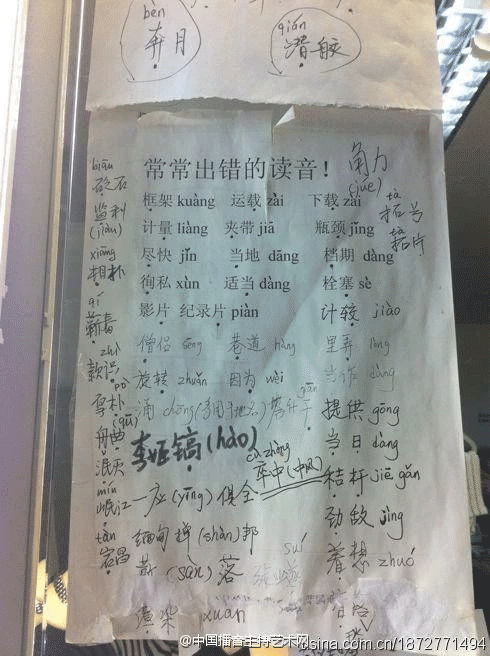 bēn
奔月
qián
潜艇
常常出错的读音！
框架 kuàng 运载 zài 下载 zài
计量 liàng 夹带 jiā 瓶颈 jǐng
尽快 jǐn 当地 dāng 档期 dàng
徇私 xùn 适当 dàng 栓塞 sè
影片 纪录片 piàn 计较 jiào
僧侣 sēng 巷道 hàng 里弄 lòng
旋转 zhuǎn 因为 wèi 当作 dàng
涌 chōng(多用于地名) 若干 gān 提供 gōng
李延镐(hào) 当日 dàng
一应(yīng)俱全 卒中(中风) cù zhòng 秸秆 jiē gǎn
缅甸掸(shàn)邦 劲敌 jìng
散(sàn)落 suí 着想 zhuó
渲染 xuàn
角力
(jué)
tà
拓片
biān
砭石
监利
(jiàn)
xiàng
相扑
qí
蕲春
zhì
款识
pò
厚朴
(qū)
舟曲
泯灭
mín
岷江
tàn
宕昌
@中国播音主持艺术网
dsina.com.cn/1872771494